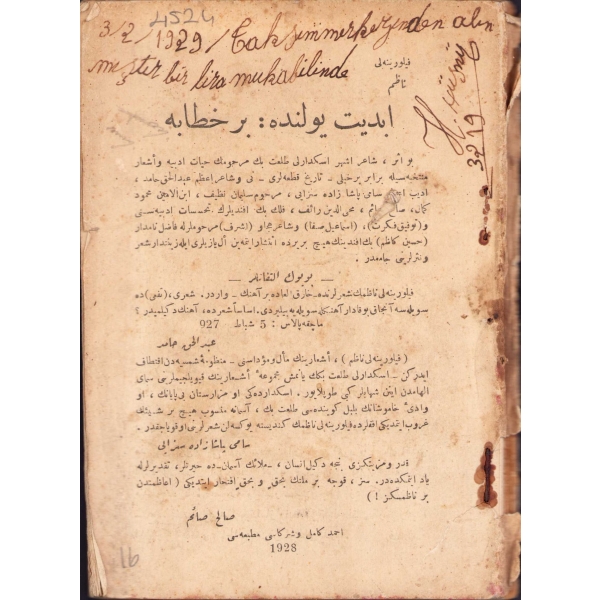 4524
3/2/1929/ Taksim merkezinden alın
mıştır bir lira mukabilinde
H. Hüsnü
3229
فیلورینه‌لی
ناظم
ابدیت یولنده: بر خطابه
بو اثر ، شاعر اشهر اسکدارلی طلعت بك مرحومك حیات ادبیه و اشعار
منتخبه‌سیله برابر بر خیلی - تاریخ قطعه‌لری - نی و شاعر اعظم عبدالحق حامد ،
ادیب سامی پاشا زاده سزائی ، مرحوم سلیمان نظیف ، ابن الامین محمود
کمال، صائم ، محی‌الدین رائف ، فلك بك افندیلرك تخمسات ادبیه‌سنی
و(توفیق فکرت)، (اسماعیل صفا) و شاعر هجاو (اشرف) مرحوملرله فاضل نامدار
(حسین کاظم) بك افندینك هیچ بر یرده انتشار ایتمه‌ین ال یازیلری ایله یکدی شعر
و نثرلرینی جامعدر .
بویوك التفاتلر
فیلورینه‌لی ناظمك شعرلرنده - خارق العاده بر آهنك - واردر. شعری، (نفی) ده
سویله‌سه آنجاق بو قادار آهنکله سویله‌یه‌بیلیردی. اساساً شعرده، آهنك دکلمیدر ؟
ماچقه پالاس : 5 شباط 927
عبدالحق حامد
(فیلورینه‌لی ناظم) ، اشعارینك مآل و مؤداسنی - منظومهٔ شمسیه‌دن اقتطاف
ایدرکن - اسکدارلی طلعت بکك یاتمش مجموعهٔ اشعارینك قیویلجیملرینی سمای
الهامدن اینن شهابلر کبی طوپلایور. اسکدارده‌کی او مزارستان بی‌پایانك ، او
وادئ خاموشانك بلبل کوینده‌سی طلعت بك ، آسمانه منسوب هیچ بر شیئك
غروب ایتمدیکی افقلرده فیلورینه‌لی ناظمك کندیسنه یوکسه‌لن شعرلرنی اوقویاجقدر.
سامی پاشا زاده سزائی
قدر و مزیتکزی یکجه دکیل انسان ، - ملائك آسمان - ده حیر نظر، تقدیر لرله
یاد ایتمکده‌در. سز ، قوجه بر ملتك بحق و بحق افتخار ایتدیکی (اعاظمندن
بر ناظمسکز !)
صالح صائم
احمد کامل و شرکاسی مطبعه‌سی
1928
16